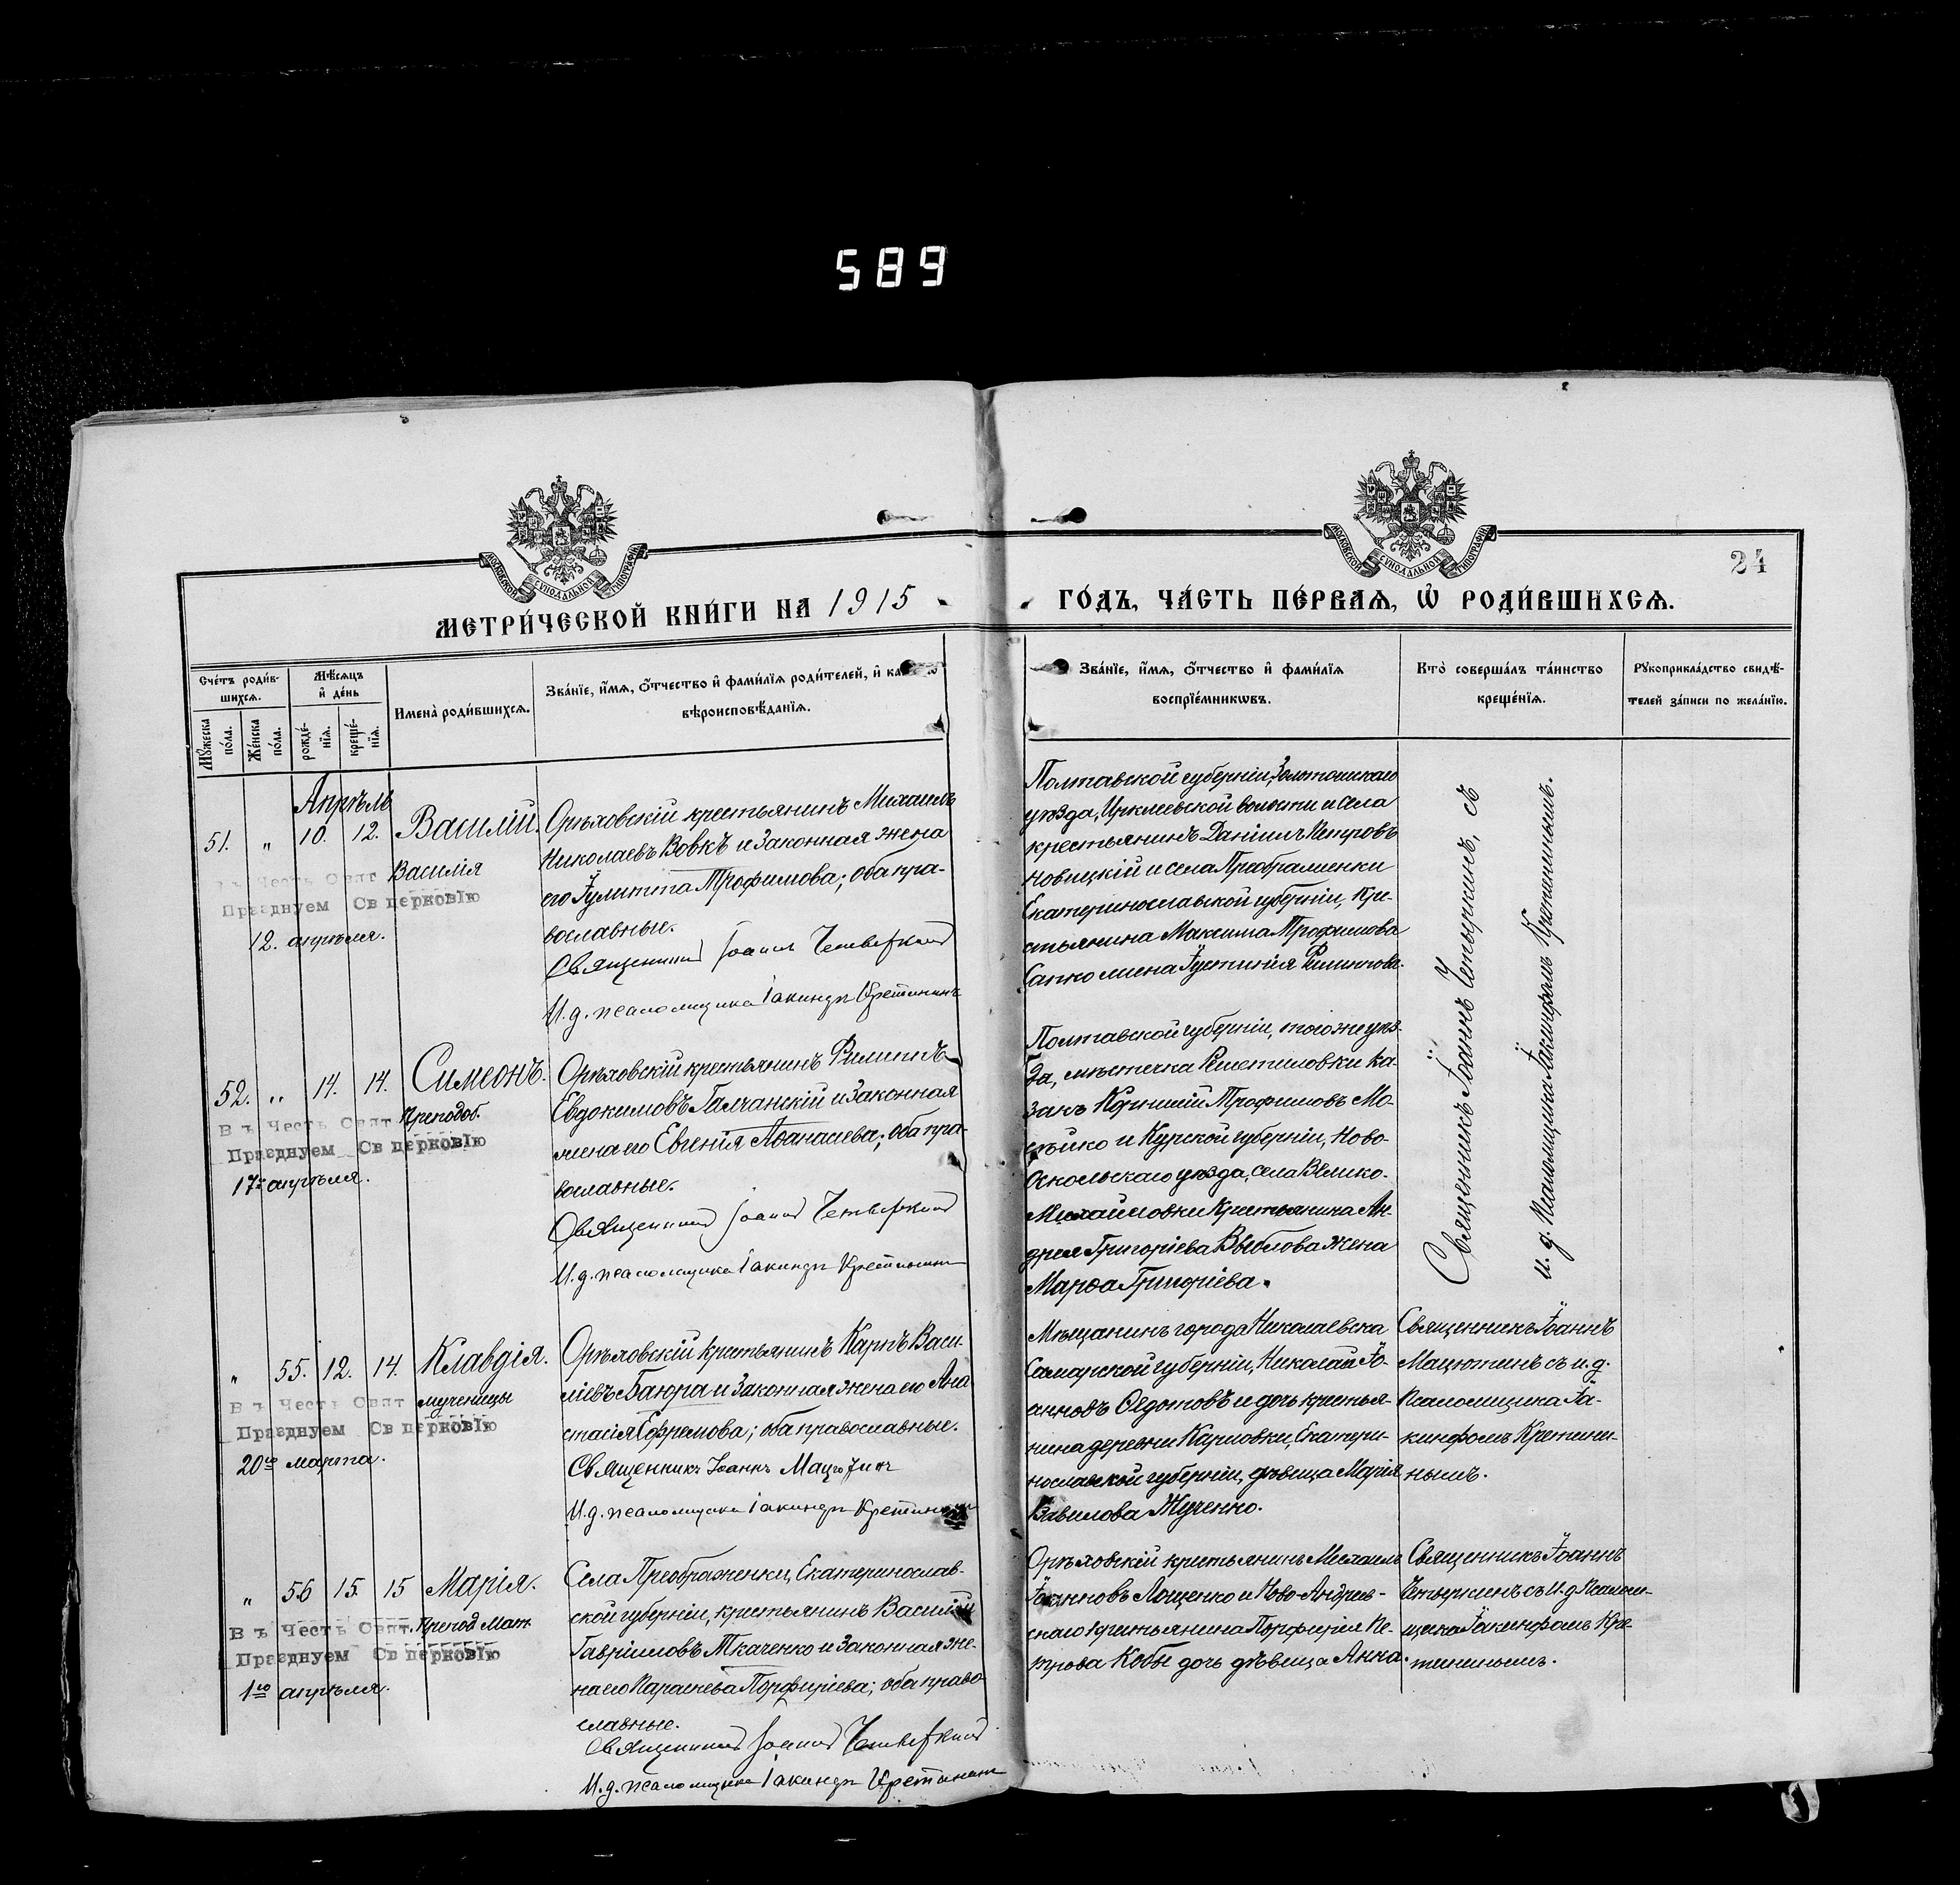 589
МОСКОВСКОЙ СѴНОДАЛЬНОЙ ТИПОГРАФІИ
МОСКОВСКОЙ СѴНОДАЛЬНОЙ ТИПОГРАФІИ
24
МЕТРИ́ЧЕСКОЙ КНИ́ГИ НА 1915
ГО́ДЪ, ЧА́СТЬ ПЕ́РВАѦ, Ѡ҆ РОДИ́ВШИХСѦ.
Сче́тъ роди́в-
шихсѧ.
Мꙋ́жеска по́ла.
Же́нска по́ла.
Мѣ́сѧцъ
и҆ де́нь
рожде́-
нїѧ.
креще́-
нїѧ.
Имена̀ роди́вшихсѧ.
Зва́нїе, и҆́мѧ, ѻ҆́тчество и҆ фами́лїѧ роди́телей, и҆
вѣроисповѣ́данїѧ.
Зва́нїе, и҆́мѧ, ѻ҆́тчество и҆ фами́лїѧ
воспрїе́мникωвъ.
Кто̀ соверша́лъ та́инство
креще́нїѧ.
Рꙋкоприкла́дство свидѣ́-
телей за́писи по жела́нїю.
Апрѣль
51. " 10. 12. Василій.
Въ Честь Свят Василія
Празднуем Св церковІю
12. апрѣля.
Орѣховскій крестьянинъ Михаилъ
Николаевъ Вовкъ и законная жена
его Іулитта Трофимова; оба пра-
вославные.
Священникъ Іоаннъ
И.д. псаломщика Іакинфъ Кретининъ
Полтавской губерніи, Золотоношскаго
уѣзда, Ирклеевской волости и села
крестьянинъ Даніилъ Петровъ
новицкій и села Преображенки
Екатеринославской губерніи, кре-
стьянина Максима Трофимова
Сапко жена Іустинія Филиппова.
52. " 14. 14. Симеонъ.
Въ Честь Свят Преподоб.
Празднуем Св церковІю
17го апрѣля.
Орѣховскій крестьянинъ Филиппъ
Евдокимовъ Галчанскій и законная
жена его Евгенія Аѳанасіева; оба пра-
вославные.
Священникъ Іоаннъ
И.д. псаломщика Іакинфъ Кретининъ
Полтавской губерніи, того же уѣз-
да, мѣстечка Решетиловки ка-
закъ Корнилій Трофимовъ Мо-
сѣйко и Курской губерніи, Ново-
Оскольскаго уѣзда, села Велико-
Михайловки крестьянина Ан-
дрея Григоріева жена
Марѳа Григоріева.
Священникъ Іоаннъ съ
и. д. Псаломщика Іакинфомъ Кретининымъ.
" 55. 12. 14. Клавдія.
Въ Честь Свят мученицы
Празднуем Св церковІю
20го марта.
Орѣховскій крестьянинъ Карпъ Васи-
ліевъ Баюра и законная жена его Ана
стасія Ефремова; оба православные.
Священникъ Іоаннъ Мацютинъ
И.д. псаломщика Іакинфъ Кретининъ
Мѣщанинъ города Николаевска
Самарской губерніи, Николай Іо-
анновъ Ѳедотовъ и дочь крестья-
нина деревни Карловки, Екатери-
нославской губерніи, дѣвица Марія
Вавилова Жученко.
Священникъ Іоаннъ
Мацютинъ съ и. д.
Псаломщика Іа-
кинфомъ Кретини-
нымъ.
" 56 15. 15 Марія.
Въ Честь Свят. Препод Мат.
Празднуем Св церковІю
1го апрѣля.
Села Преображенки, Екатеринослав-
ской губерніи, крестьянинъ Василій
Гавріиловъ Ткаченко и законная же-
на его Параскева Порфиріева; оба право-
славные.
Священникъ Іоаннъ
И.д. псаломщика Іакинфъ Кретининъ
Орѣховскій крестьянинъ Михаилъ
Іоанновъ Лощенко и Ново-Андреев-
скаго крестьянина Порфирія Пе-
трова Кобы дочь дѣвица Анна.
Священникъ Іоаннъ
съ И.д Псалом-
щика Іакинфомъ Кре-
тининымъ.